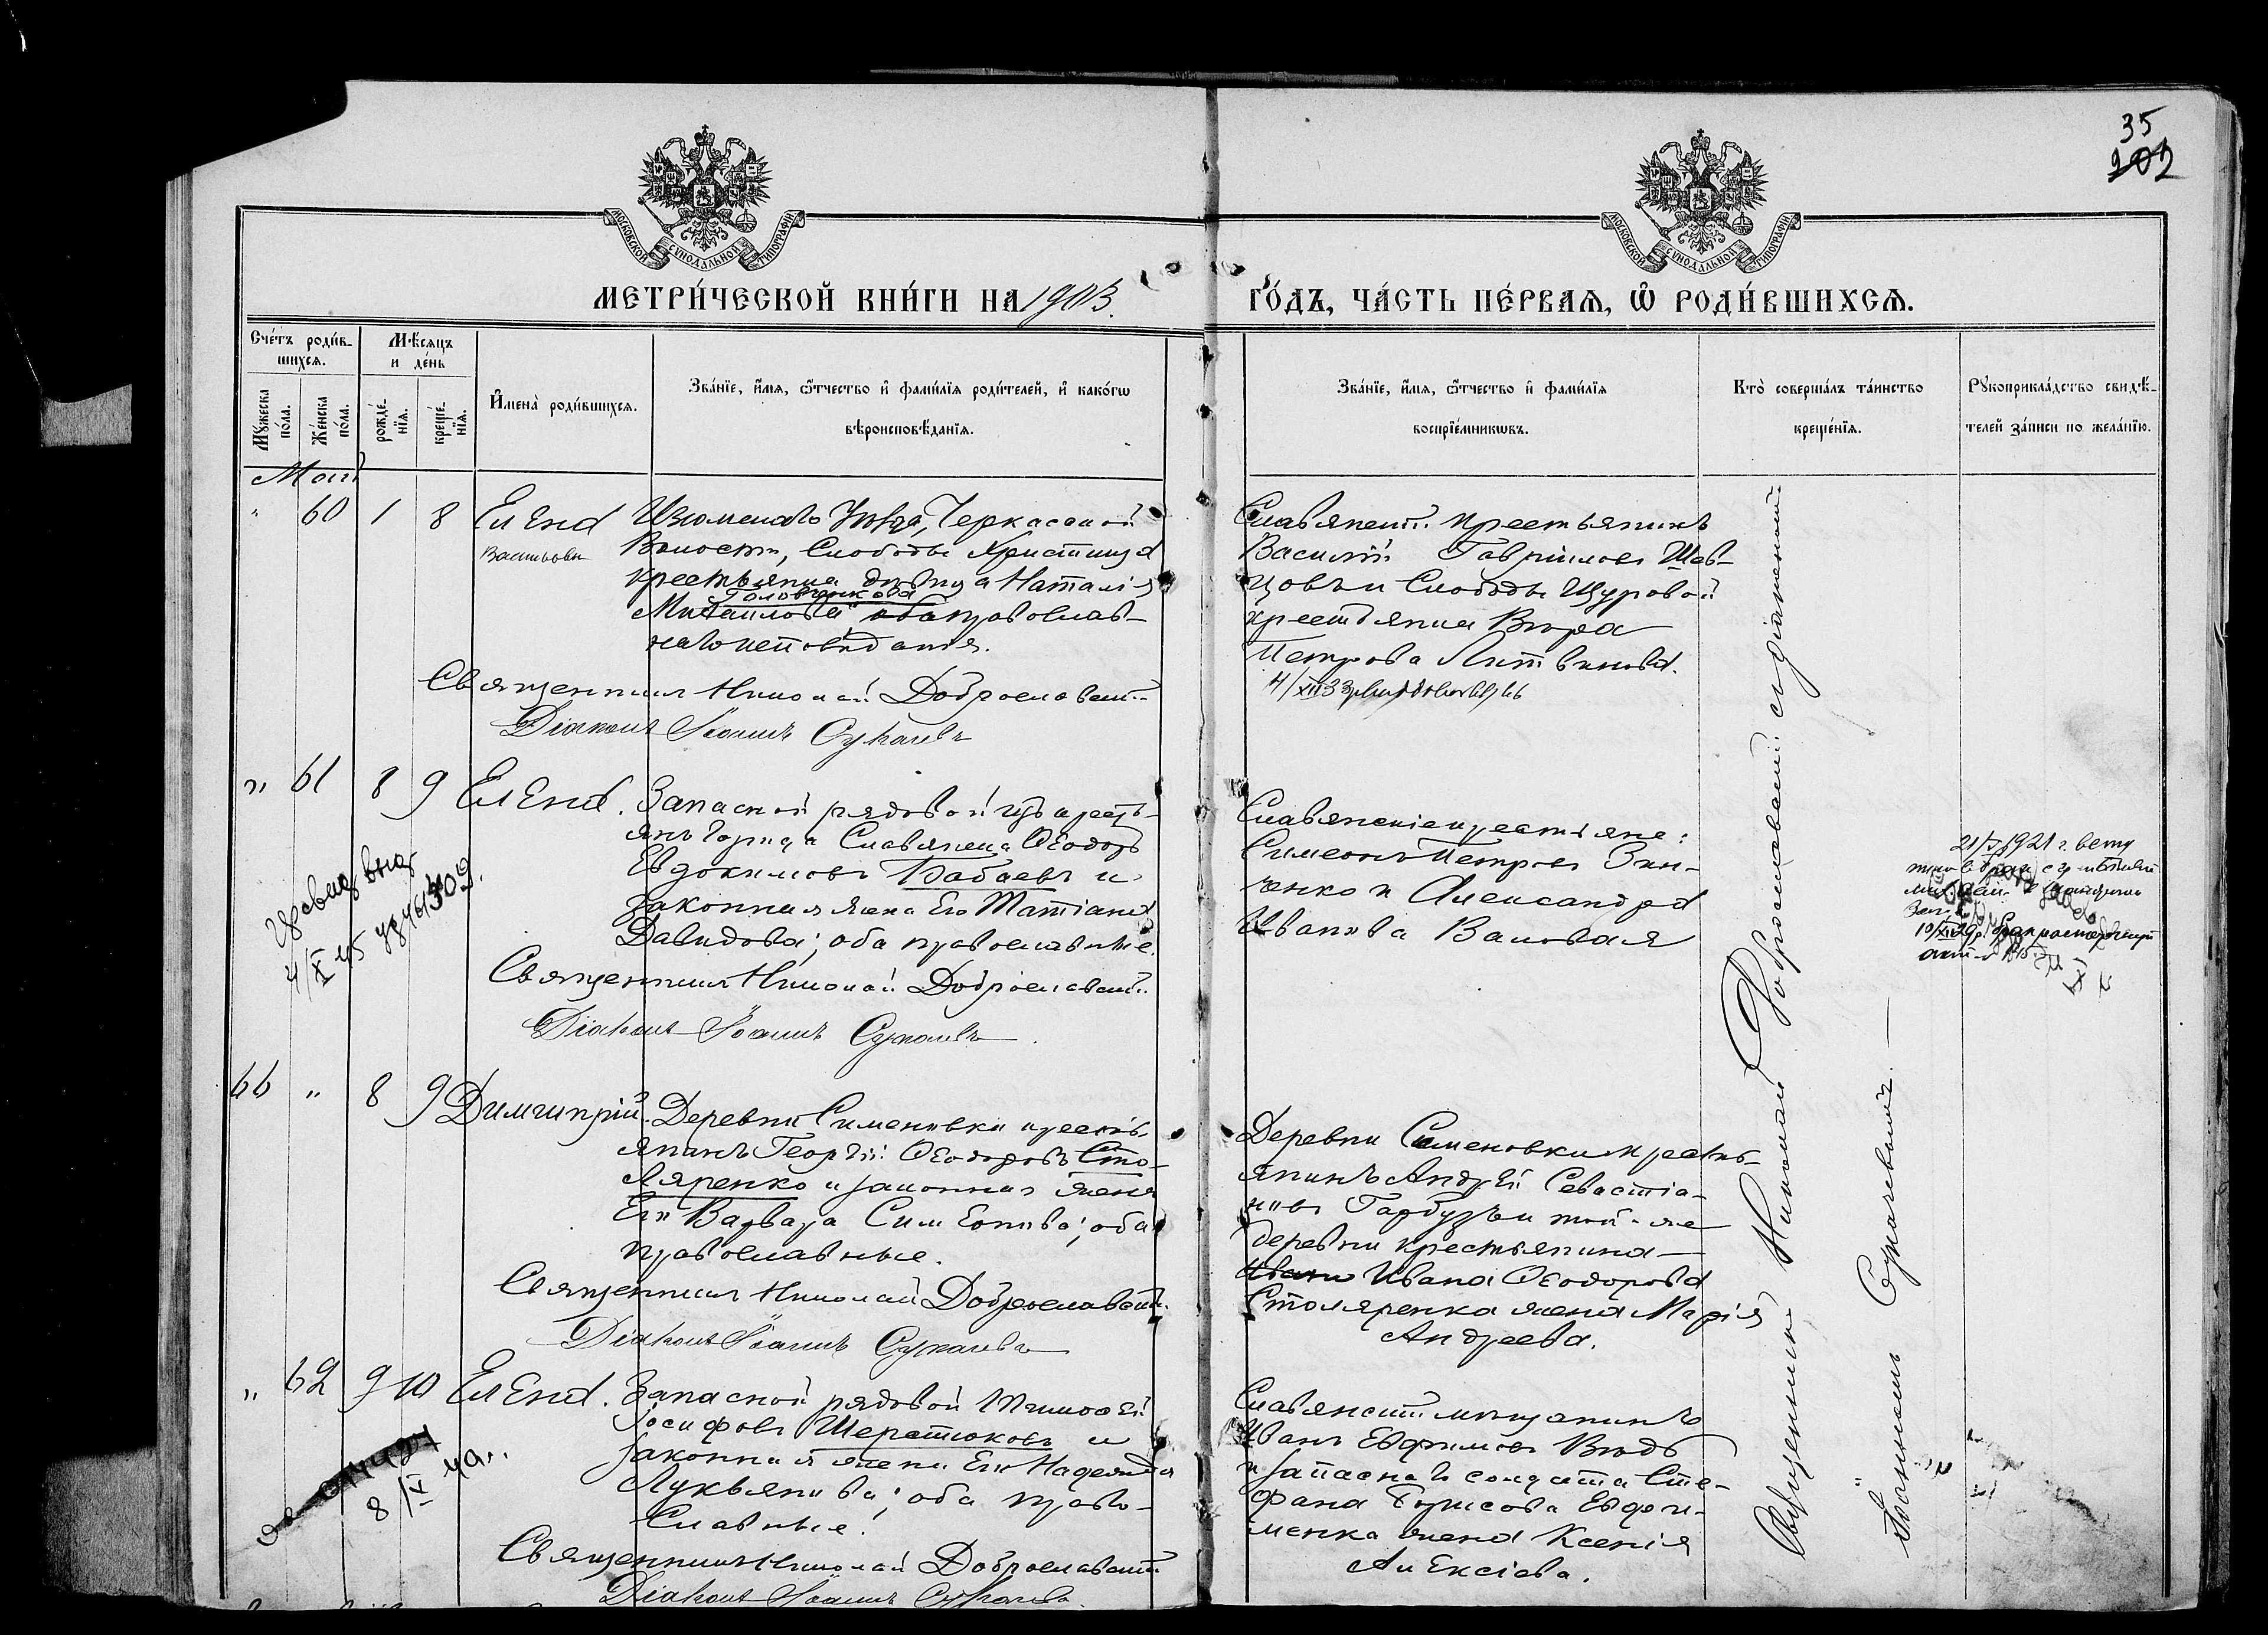 35
202
МОСКОВСКОЙ СѴНОДАЛЬНОЙ ТИПОГРАФІИ
МОСКОВСКОЙ СѴНОДАЛЬНОЙ ТИПОГРАФІИ
МЕТРИ́ЧЕСКОЙ КНИ́ГИ НА 1903.
ГО́ДЪ, ЧА́СТЬ ПЕ́РВАѦ, Ѡ҆ РОДИ́ВШИХСѦ.
Сче́тъ роди́в-
шихсѧ.
Мѣ́сѧцъ
и де́нь
Мꙋ́жеска
по́ла.
Же́нска
по́ла.
рожде́-
нїѧ.
креще́-
нїѧ.
И҆мена̀ роди́вшихсѧ.
Зва́нїе, и҆́мѧ, ѻ҆́тчество и҆ фами́лїѧ роди́телей, и҆ како́гѡ
вѣроисповѣ́данїѧ.
Зва́нїе, и҆́мѧ, ѻ҆́тчество и҆ фами́лїѧ
воспрїе́мникѡвъ.
Кто̀ соверша́лъ та́инство
креще́нїѧ.
Рꙋкоприкла́дство свидѣ́-
телей за́писи по жела́нїю.
Май
" 60 1 8 Елена
Васильовн
Изюмскаго Уѣзда, Черкасской
Волости, Слободы Христища
крестьянка дѣвица Наталія
Головченкова
Михаилова православ-
наго исповѣданія.
Священникъ Николай Доброславскій
Діаконъ Іоаннъ Сукачевъ
Славянскій крестьянинъ
Василій Гавриловъ Шев-
цовъ и Слободы Щуровой
крестьянка Вѣра
Петрова Литвинова.
" 61 8 9 Елена.
Запасной рядовой изъ кресть-
янъ города Славянска Ѳеодоръ
Евдокимовъ Бабаевъ и
законная жена его Татіана
Давидова; оба православные.
Священникъ Николай Доброславскій
Діаконъ Іоаннъ Сукачевъ
Славянскіе крестьяне:
Симеонъ Петровъ Зин-
ченко и Александра
Иванова Валовая
21/X 1921 г. всту
66 " 8 9 Димитрій.
Деревни Сименовки кресть-
янинъ Георгій Ѳеодоровъ Сто-
ляренко и законная жена
его Варвара Симеонова; оба
православные.
Священникъ Николай Доброславскій
Діаконъ Іоаннъ Сукачевъ
Деревни Сименовки кресть-
янинъ Андрей Севастіа-
новъ Гарбузъ и той-же
деревни крестьянина
Ивана Ивана Ѳеодорова
Столяренка жена Марія
Андреева.
" 62 9 10 Елена.
8/V 49 г.
Запасной рядовой Тимоѳей
Іосифовъ Шерстюковъ и
законная жена его Надежда
Лукьянова; оба право-
славные.
Священникъ Николай Доброславскій
Діаконъ Іоаннъ Сукачевъ
Славянскій мѣщанинъ
Иванъ Евфимовъ
и запаснаго солдата Сте-
фана Борисова Евфи-
менка жена Ксенія
Алексіева.
Священникъ Николай Доброславскій съ діакономъ
Іоанномъ Сукачевымъ.